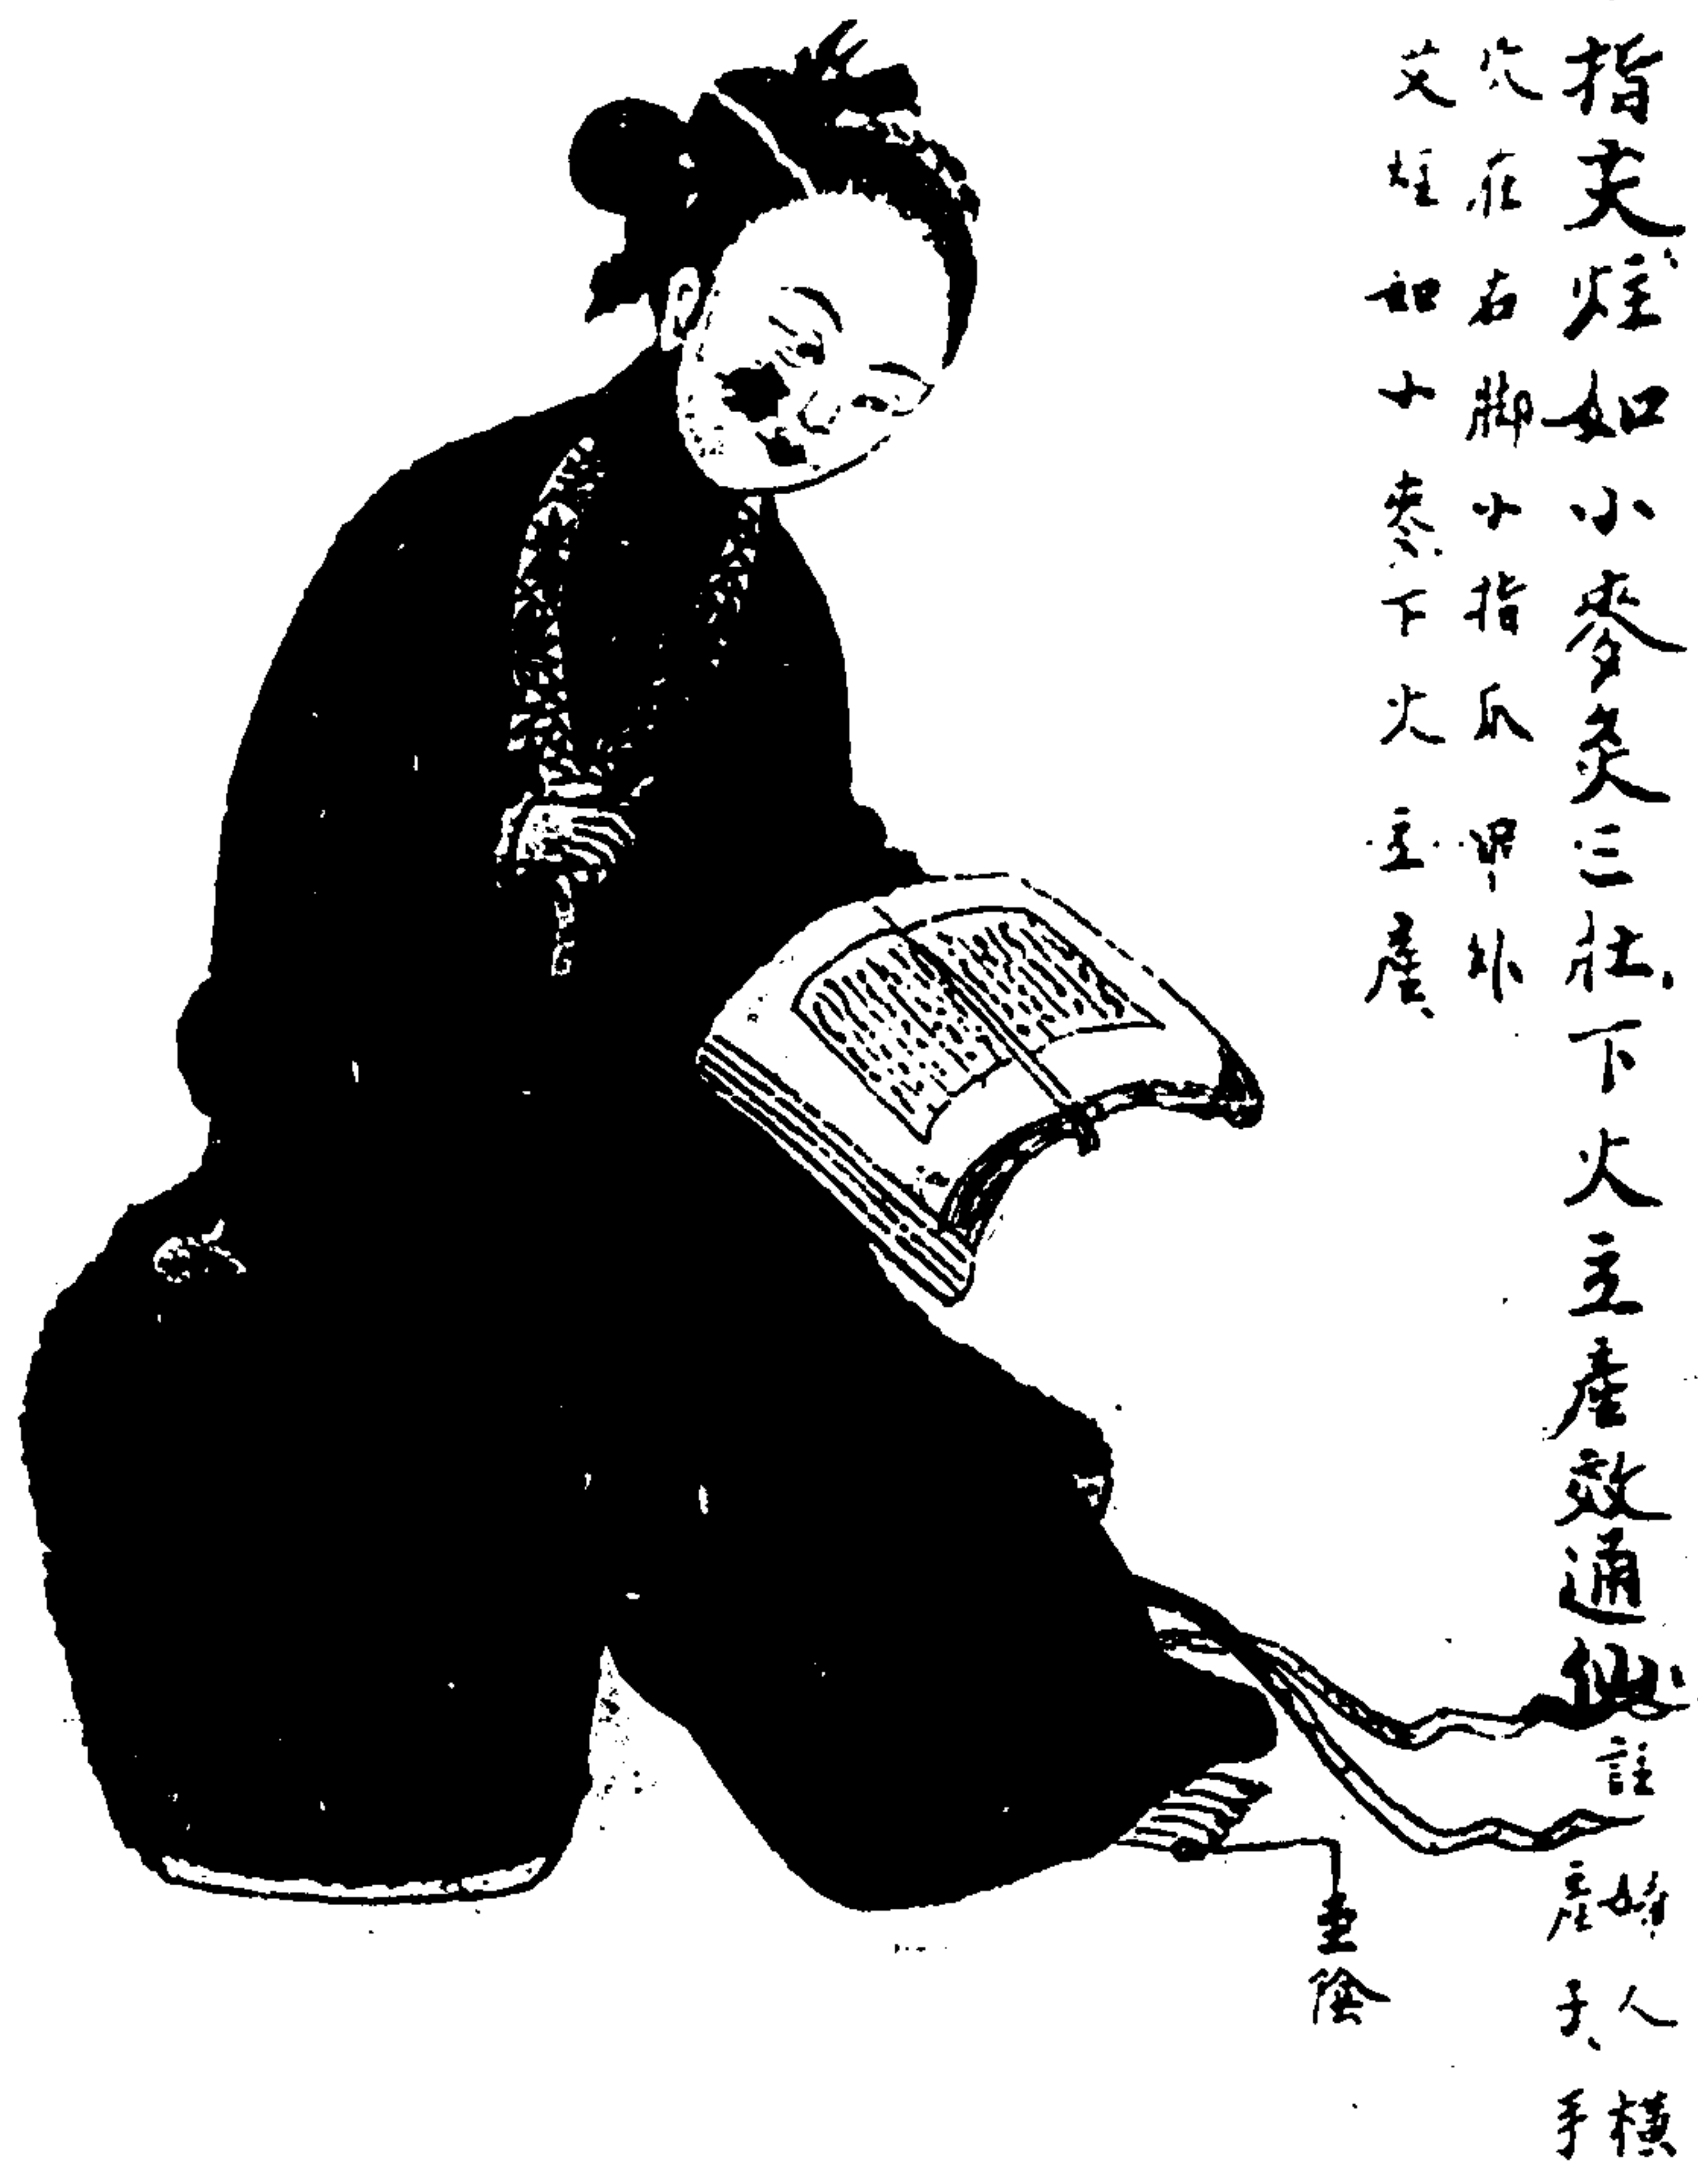 指尖炷如小麥灸三壯下火立產效通仙
註
婦人橫
產子手
穴在右脚小指爪甲外
艾炷如小麥下火立產
至陰